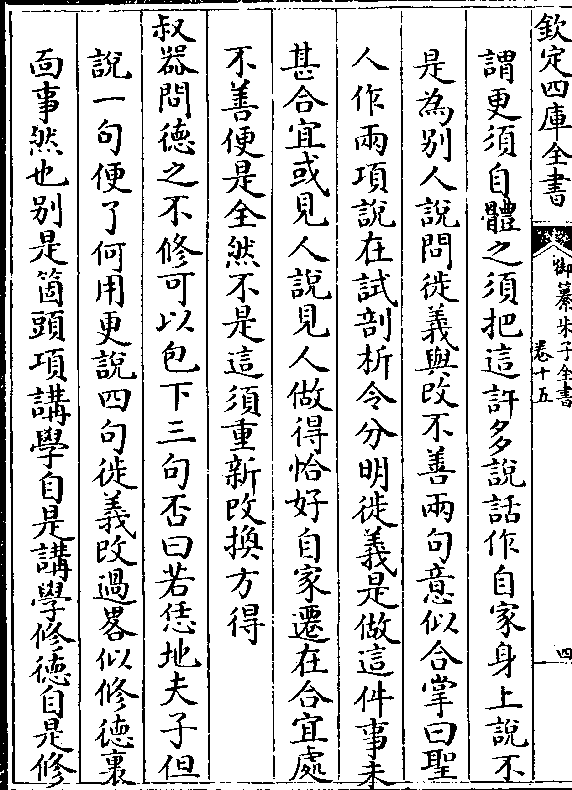 欽定四庫全書
御纂朱子全書
卷十五
四
謂更須自體之須把這許多說話作自家身上說不
是為別人說問徙義與改不善兩句意似合掌曰聖
人作兩項說在試剖析令分明徙義是做這件事未
甚合宜或見人說見人做得恰好自家遷在合宜處
不善便是全然不是這須重新改換方得
叔器問徳之不修可以包下三句否曰若恁地夫子但
說一句便了何用更說四句徙義改過畧似修徳裏
面事然也別是箇頭項講學自是講學修徳自是修